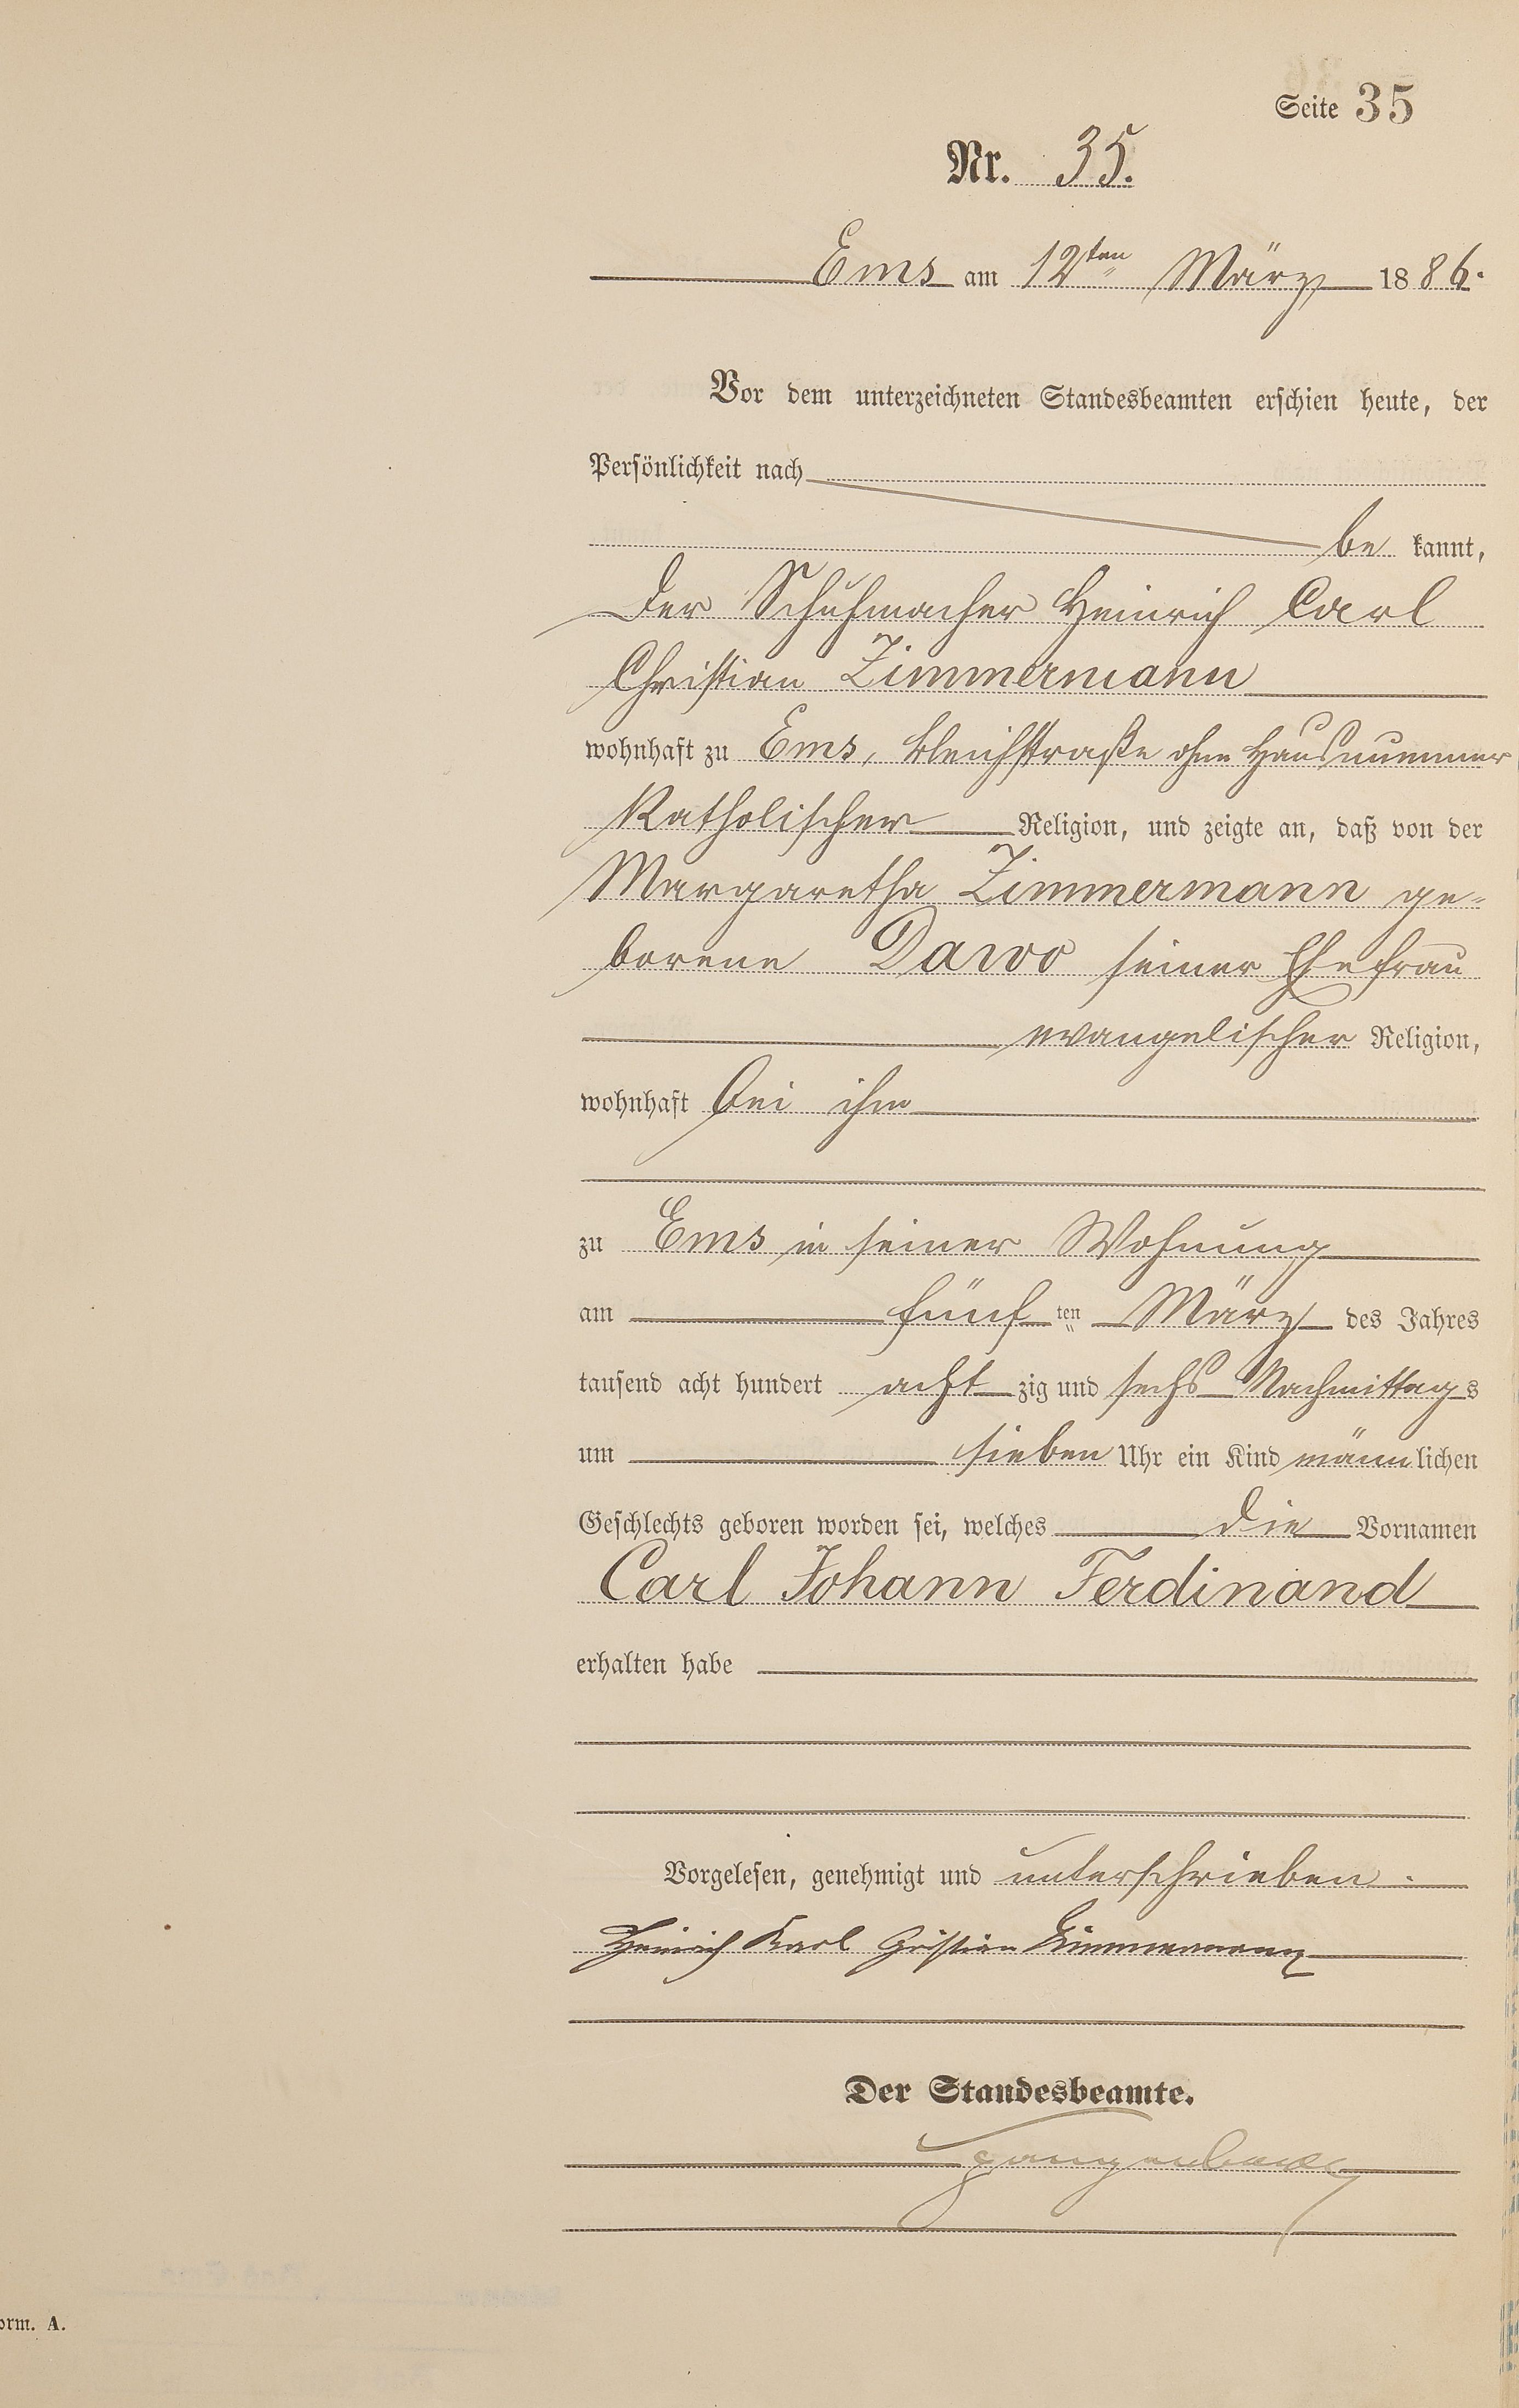 Seite 35
Nr. 35.
Ems am 12ten März 1886.
Vor dem unterzeichneten Standesbeamten erschien heute, der
Persönlichkeit nach
be kannt,
der Schuhmacher Heinrich Carl
Christian Zimmermann
wohnhaft zu Ems, Bleichstraße ohne Hausnummer
Katholischer Religion, und zeigte an, daß von der
Margaretha Zimmermann ge-
borene Dawo seiner Ehefrau
evangelischer Religion,
wohnhaft bei ihm
zu Ems in seiner Wohnung
am fünf ten März des Jahres
tausend acht hundert acht zig und sechs Nachmittags
um sieben Uhr ein Kind männlichen
Geschlechts geboren worden sei, welches die Vornamen
Carl Johann Ferdinand
erhalten habe
Vorgelesen, genehmigt und unterschrieben.
Heinrich Karl Christian Zimmermann
Der Standesbeamte.
orm. A.